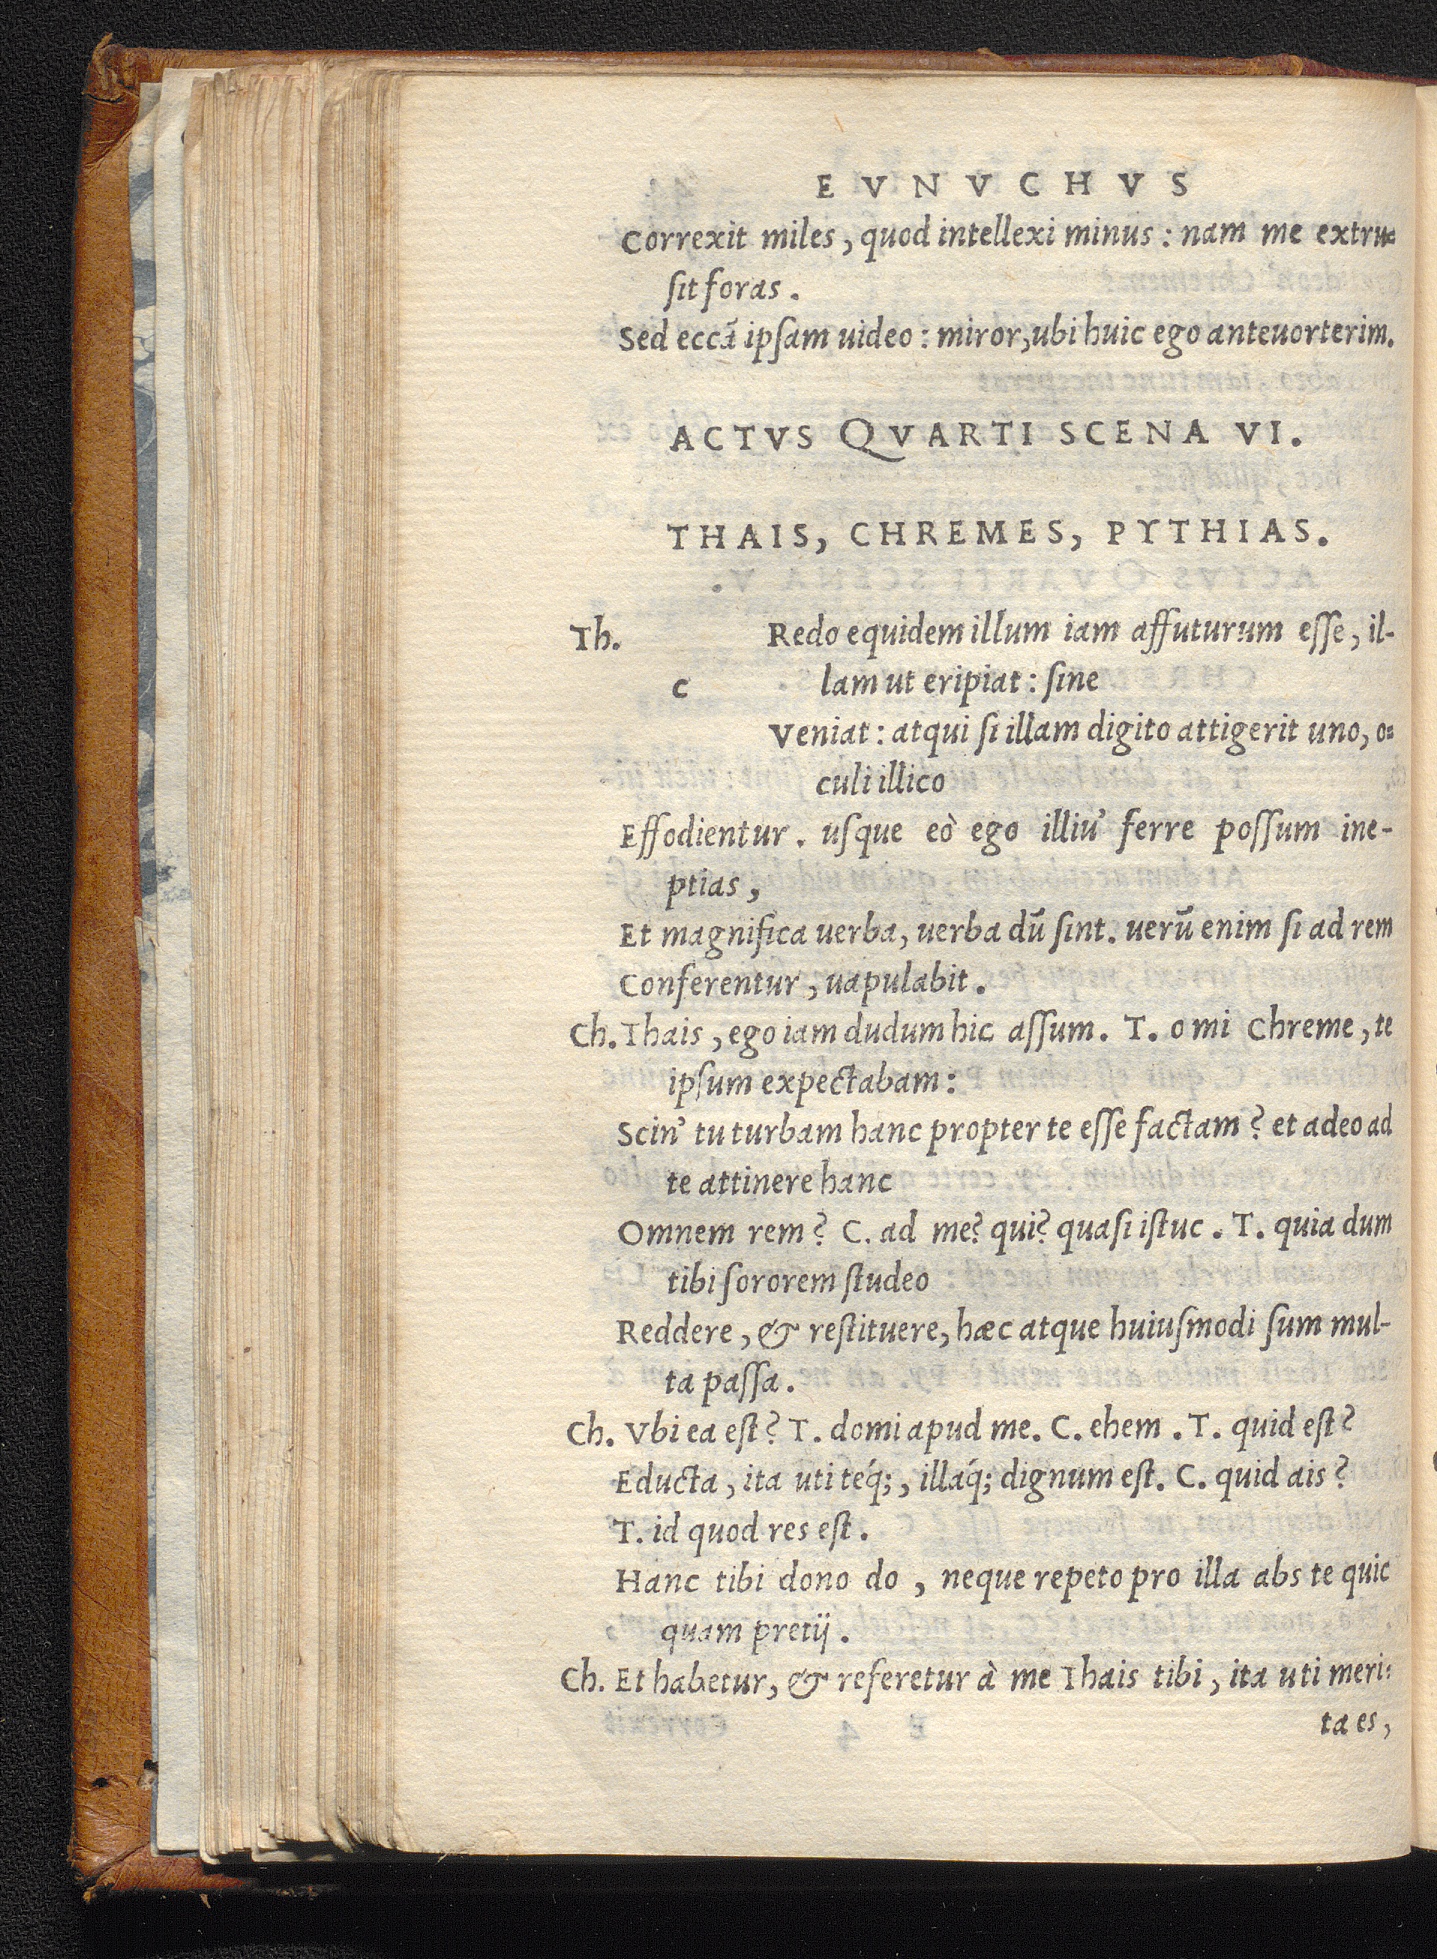 EVNVCHVS
Correxit miles, quod intellexi minus: nam me extru=
ſit foras.
Sed eccā ipſam uideo: miror, ubi huic ego anteuorterim.
ACTVS QVARTI SCENA VI.
THAIS, CHREMES, PYTHIAS.
Th. Redo equidem illum iam affuturum eſſe, il-
c lam ut eripiat: ſine
Veniat: atqui ſi illam digito attigerit uno, o=
culi illico
Effodientur. uſque eò ego illiu' ferre poſſum ine-
ptias,
Et magnifica uerba, uerba dū ſint. uerū enim ſi ad rem
Conferentur, uapulabit.
Ch. Thais, ego iam dudum hic aſſum. T. o mi Chreme, te
ipſum expectabam:
Scin' tu turbam hanc propter te eſſe factam? et adeo ad
te attinere hanc
Omnem rem? C. ad me? qui? quaſi iſtuc. T. quia dum
tibi ſororem ſtudeo
Reddere, & reſtituere, hæc atque huiuſmodi ſum mul-
ta paſſa.
Ch. Vbi ea eſt? T. domi apud me. C. ehem. T. quid eſt?
Educta, ita uti téq;, illáq; dignum eſt. C. quid ais?
T. id quod res eſt.
Hanc tibi dono do, neque repeto pro illa abs te quic
quam pretij.
Ch. Et habetur, & referetur à me Thais tibi, ita uti meri=
ta es,